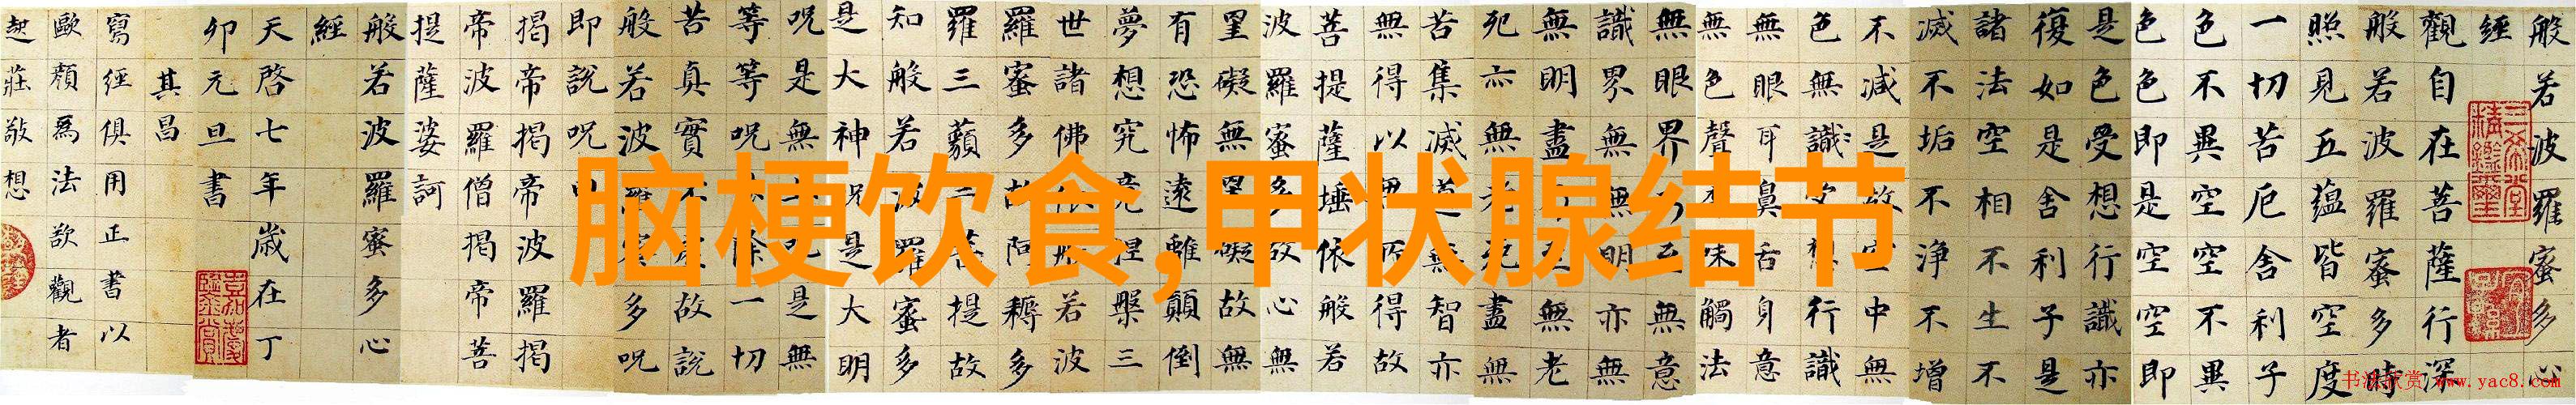 脑梗饮食,甲状腺结节
般若波羅蜜多心
經
觀自在菩薩行深
般若波羅蜜多時
照見五蘊皆空度
一切苦厄舍利子
色不異空空不異
色色即是空空即
是色受想行識亦
復如是舍利子是
諸法空相不生不
滅不垢不淨不增
不減是故空中無
色無識受想行識
無眼耳鼻舌身意
無色聲香味觸法
無眼界乃至無意
識界無無明亦無
無明盡乃至無老
死亦無老死盡無
苦集滅道無智亦
無得以無所得故
菩提薩埵依般若
波羅蜜多故心無
罣礙無罣礙故無
有恐怖遠離顛倒
夢想究竟涅槃三
世諸佛依般若波
羅蜜多故阿耨多
羅三藐三菩提故
知般若波羅蜜多
是大神呪是大明
呪是無上呪是無
等等呪能除一切
苦真實不虛故說
般若波羅蜜多呪
即說呪曰
揭帝揭帝波羅揭
帝波羅僧揭帝菩
提薩婆訶
般若波羅蜜多心
經
天啓七年歲在丁
卯元旦書
其昌
寫經俱用正書以
歐顏爲法欲觀者
起莊敬想
书法欣赏 www.yac8.com